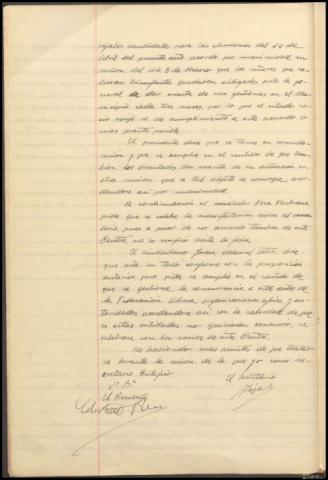 cejales candidatos para las elecciones del 12 de
Abril del presente año acordó por unanimidad en
reunion del dia 3 de Marzo que los señores que re-
sultaran triunfantes quedaban obligados ante la ge-
neral de dar cuenta de sus gestiones en el mu-
nicipio cada tres meses, por lo que el citado so-
cio exije se dé cumplimiento a este acuerdo lo
mas pronto posible
El presidente dice que se tome en conside-
ración y que se amplie en el sentido de que tam-
bien los diputados den cuenta de su actuación en
otra reunion que a tal objeto se convoque, acor-
dandose asi por unanimidad
A continuación el ciudadano
pide que se celebre la manifestación civica al cemen-
terio pues a pesar de ser acuerdo tambien de este
Centro, no se verificó hasta la fecha,
El ciudadano Juan Manuel dice
que está en todo conforme con la proposición
anterior pero pide se amplie en el sentido de
que se gestione la concurrencia a este acto de
la Federación Obrera, organizaciones afines y au-
toridades acordandose asi con la salvedad de que
si estas entidades no quisieran concurrir, se
celebrara con los socios de este Centro.
No habiendo mas asuntos de que tratar
se levanta la sesion de la que yo como se-
cretario certifico.
Vº Bº
El Presidente
El Secretario